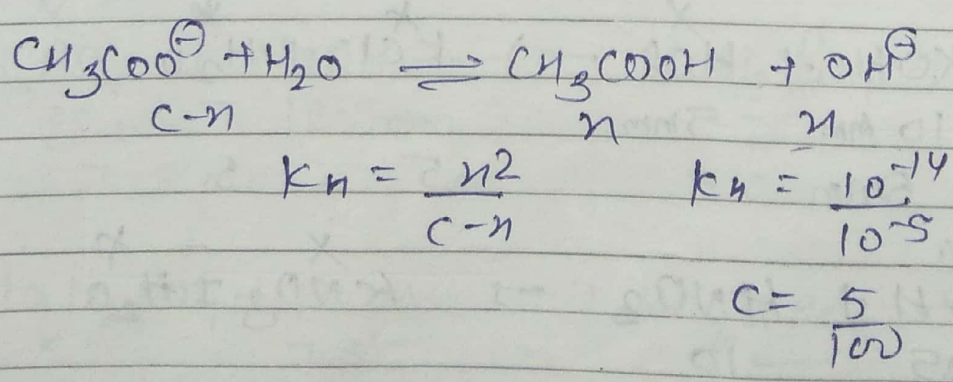 CH₃COO⊖ + H₂O ⇌ CH₃COOH + OH⊖
c-x x x
Kₕ = x²/(c-x) Kₕ = 10⁻¹⁴/10⁻⁵
C = 5/100